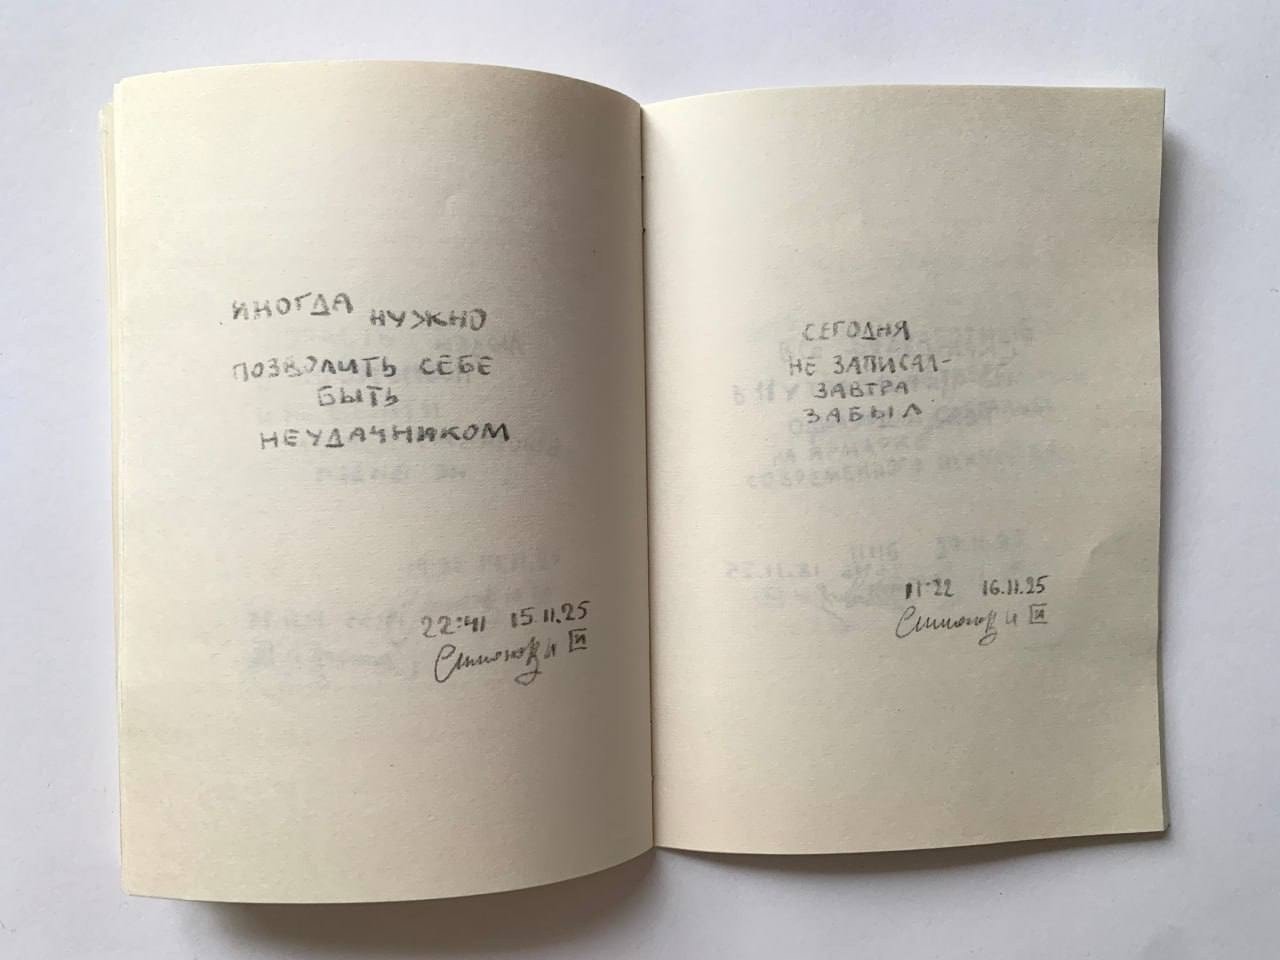 ИНОГДА НУЖНО
ПОЗВОЛИТЬ СЕБЕ
БЫТЬ
НЕУДАЧНИКОМ
22:41 15.11.25
И
СЕГОДНЯ
НЕ ЗАПИСАЛ-
ЗАВТРА
ЗАБЫЛ.
11:22 16.11.25
И